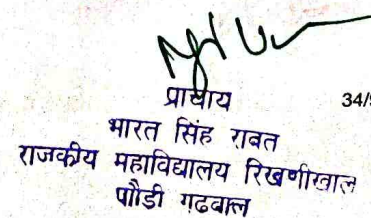 प्राचार्य
34/
भारत सिंह रावत
राजकीय महाविद्यालय रिखणीखाल
पौडी गढवाल